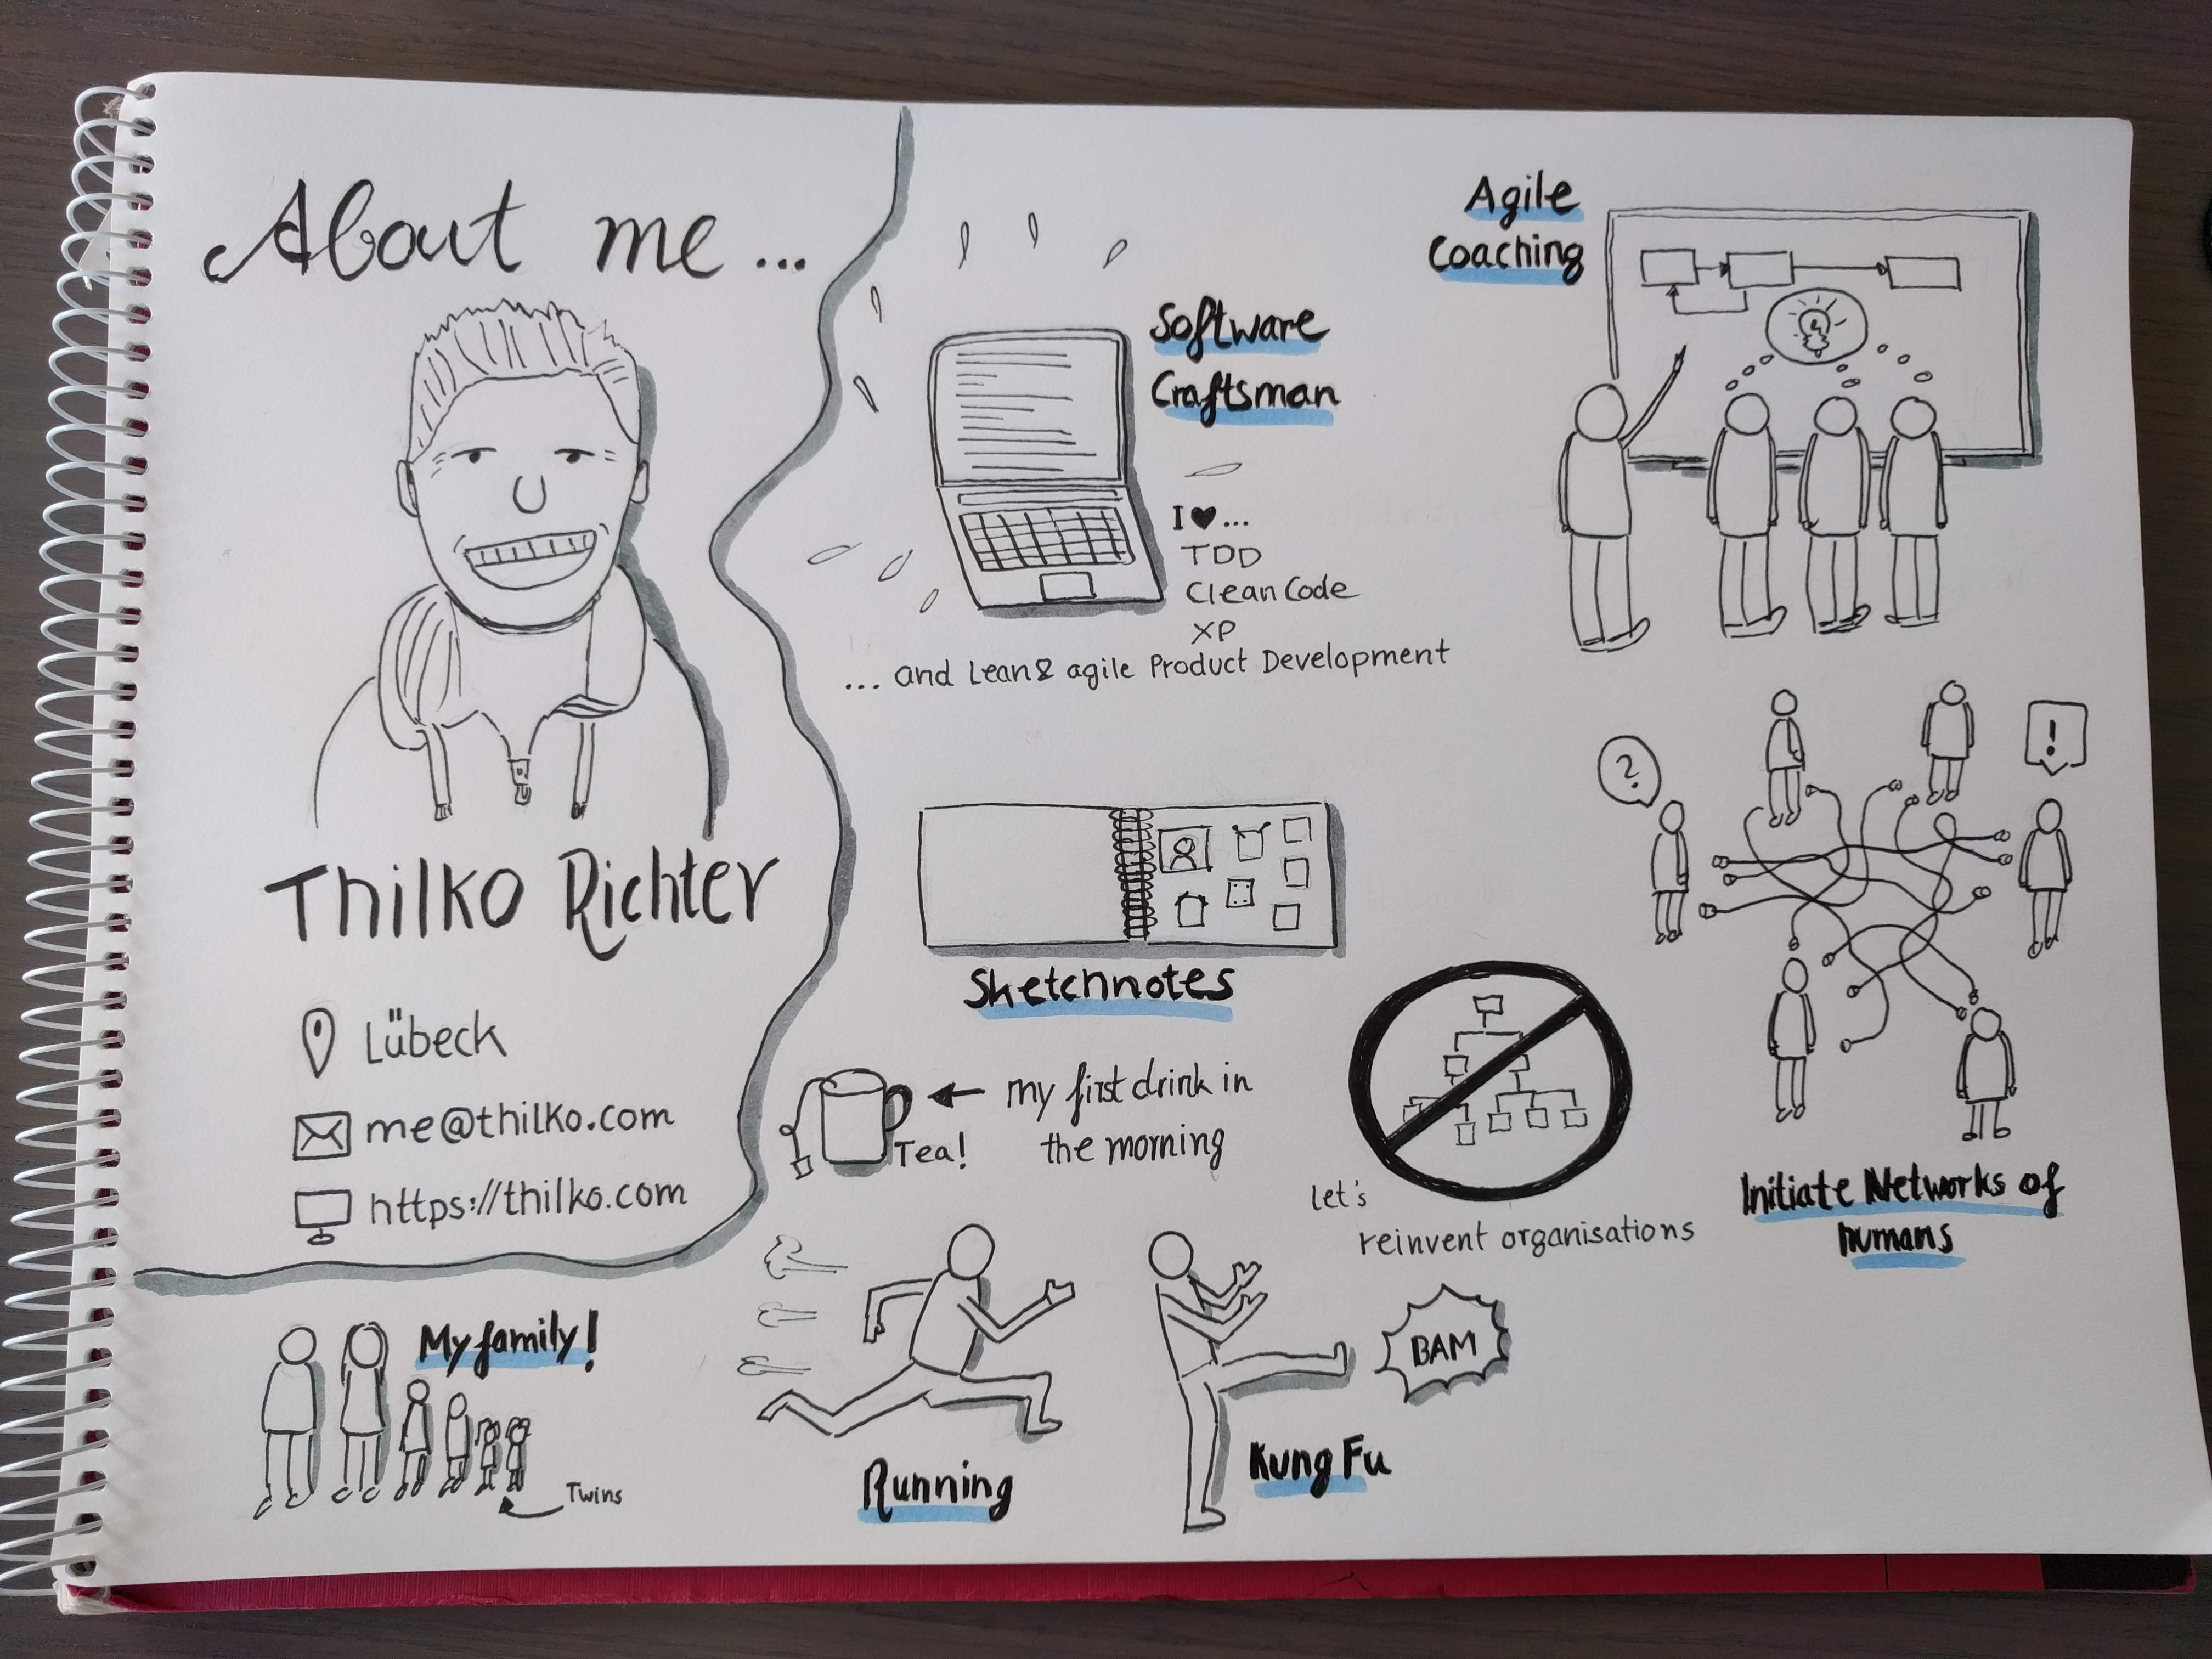 About me...
Thilko Richter
Lübeck
me@thilko.com
https://thilko.com
My family!
Twins
Software
Craftsman
I ♥...
TDD
Clean Code
XP
... and Lean & agile Product Development
Agile
Coaching
Sketchnotes
Tea!
my first drink in
the morning
?
!
Let's
reinvent organisations
Initiate Networks of
humans
Running
Kung Fu
BAM